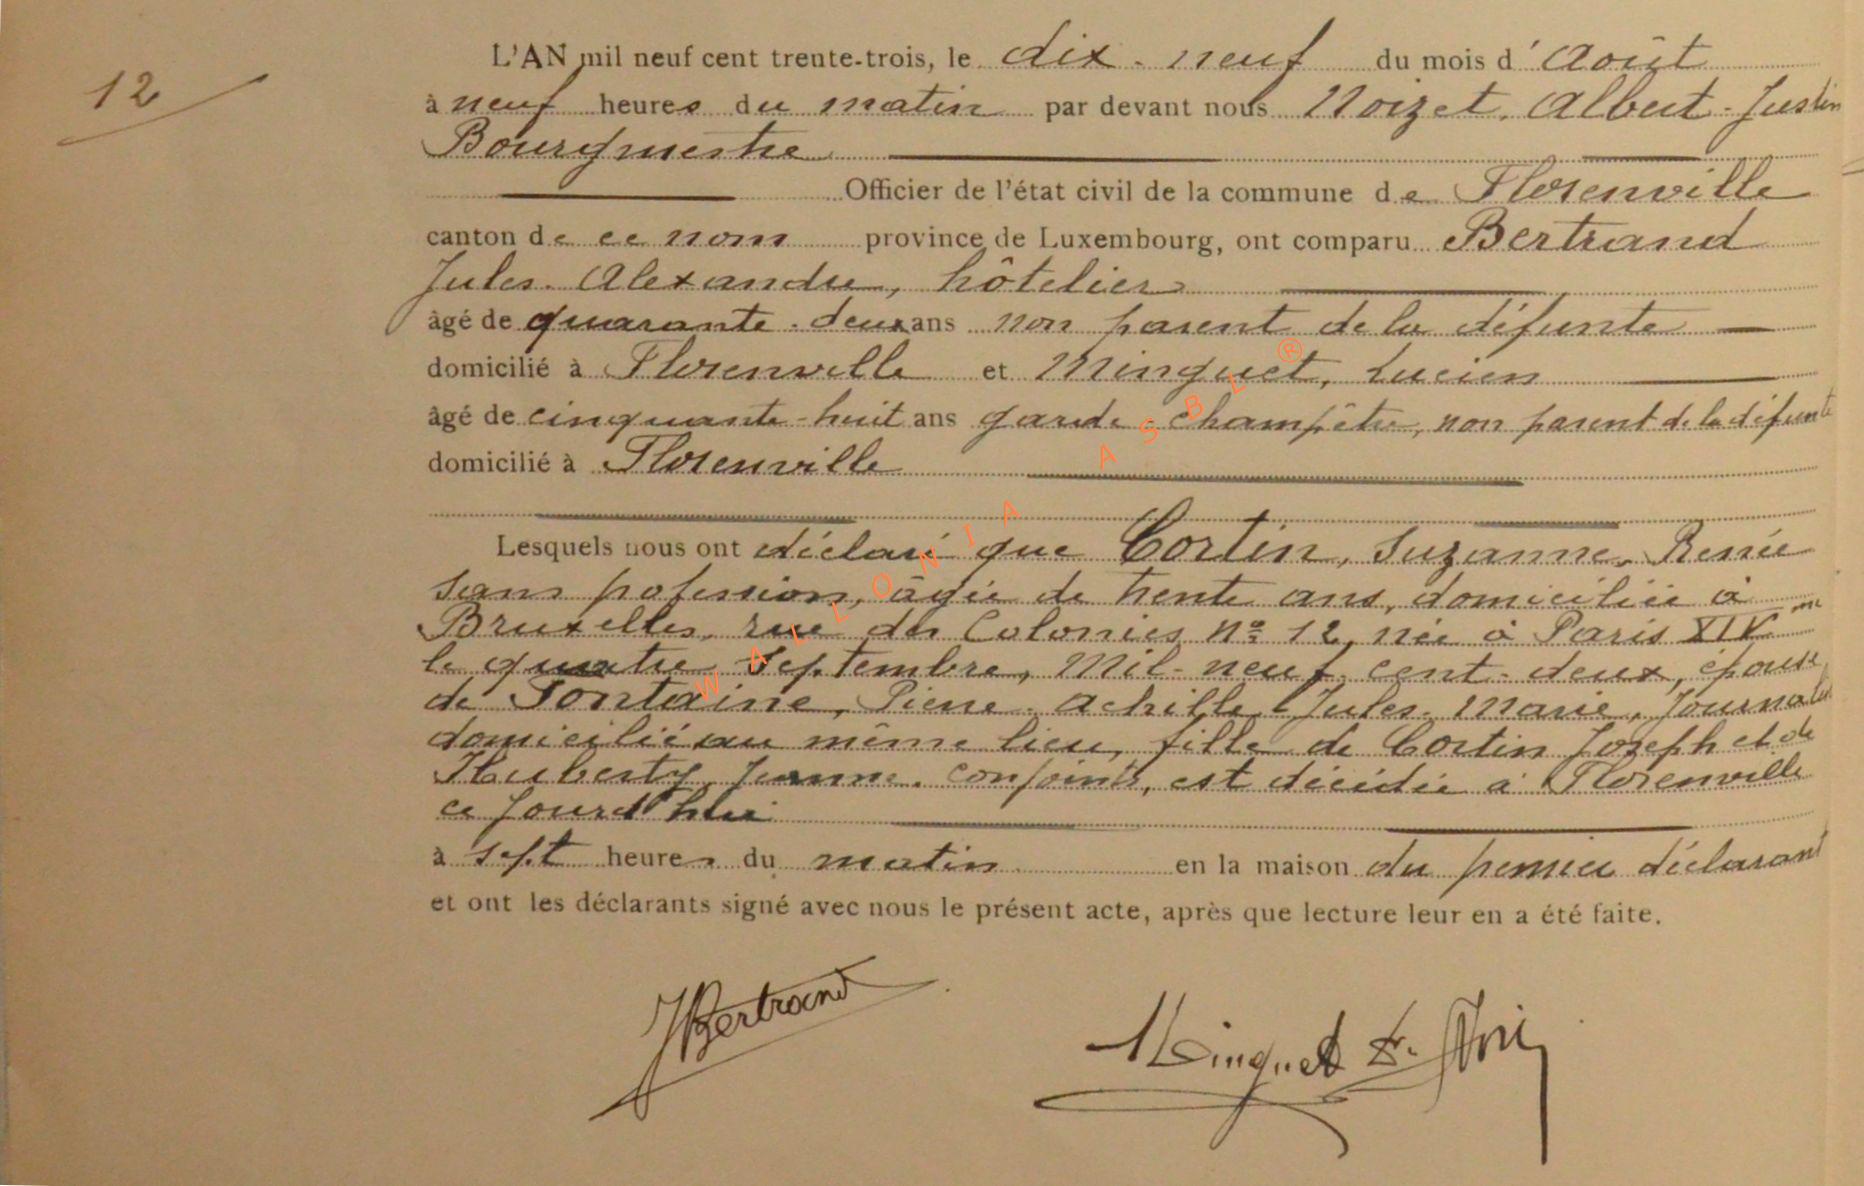 12
L'AN mil neuf cent trente-trois, le dix-neuf du mois d'Août
à neuf heures du matin par devant nous Noizet, Albert-Justin
Bourgmestre
Officier de l'état civil de la commune de Florenville
canton de ce nom province de Luxembourg, ont comparu Bertrand
Jules-Alexandre, hôtelier
âgé de quarante-deux ans non parent de la défunte
domicilié à Florenville et Minguet, Lucien
âgé de cinquante-huit ans garde-champêtre, non parent de la défunte
domicilié à Florenville
Lesquels nous ont déclaré que Cortin, Suzanne-Renée
sans profession, âgée de trente ans, domiciliée à
Bruxelles, rue des Colonies Nº 12, née à Paris XIVme
le quatre Septembre, Mil-neuf cent-deux, épouse
de Fontaine, Pierre-Achille-Jules-Marie, Journaliste
domicilié au même lieu, fille de Cortin Joseph et de
Huberty Jeanne conjoints, est décédée à Florenville
ce jourd'hui
à sept heures du matin en la maison du premier déclarant
et ont les déclarants signé avec nous le présent acte, après que lecture leur en a été faite.
JBertrand
Minguet L.
WALLONIA ASBL ®